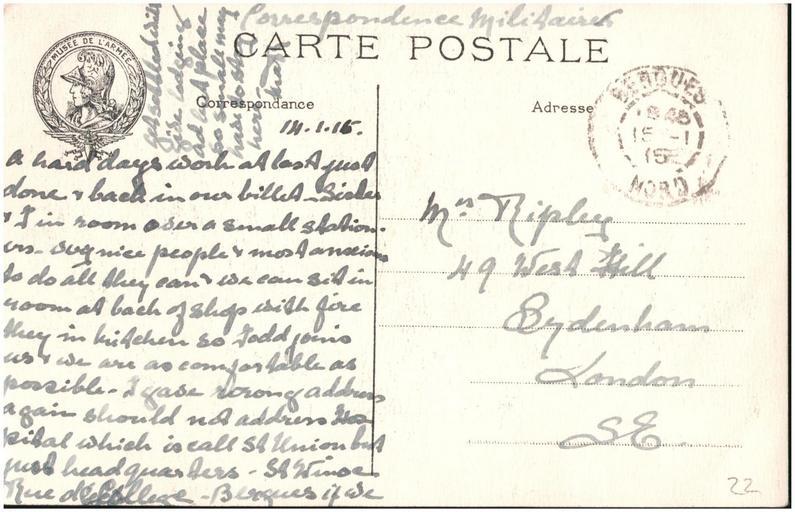 Correspondence Militaires
CARTE POSTALE
MUSÉE DE L'ARMÉE
Correspondance
Adresse
14.1.15.
A hard days work at last just
done & back in our billet - Sister
& I in room over a small station-
ers - very nice people & most anxious
to do all they can & we can sit in
room at back of shop with fire
they in kitchen so Todd joins
us & we are as comfortable as
possible - I gave wrong address
again should not address Hos-
pital which is call St Union but
just headquarters - St Winoc
Rue du College - Bergues if we
get settled will
give lodging
at last place
so small may
have to shift
here
Mrs Ripley
49 West Hill
Sydenham
London
S.E.
BERGUES
15 -1
15
NORD
22